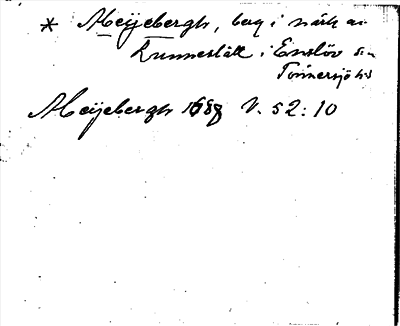 * Meijebergh, beg i närh av
Lunnaslätt i Enslöv sn
Tönnersjö hd
Meijebergh 1687 V. 52:10